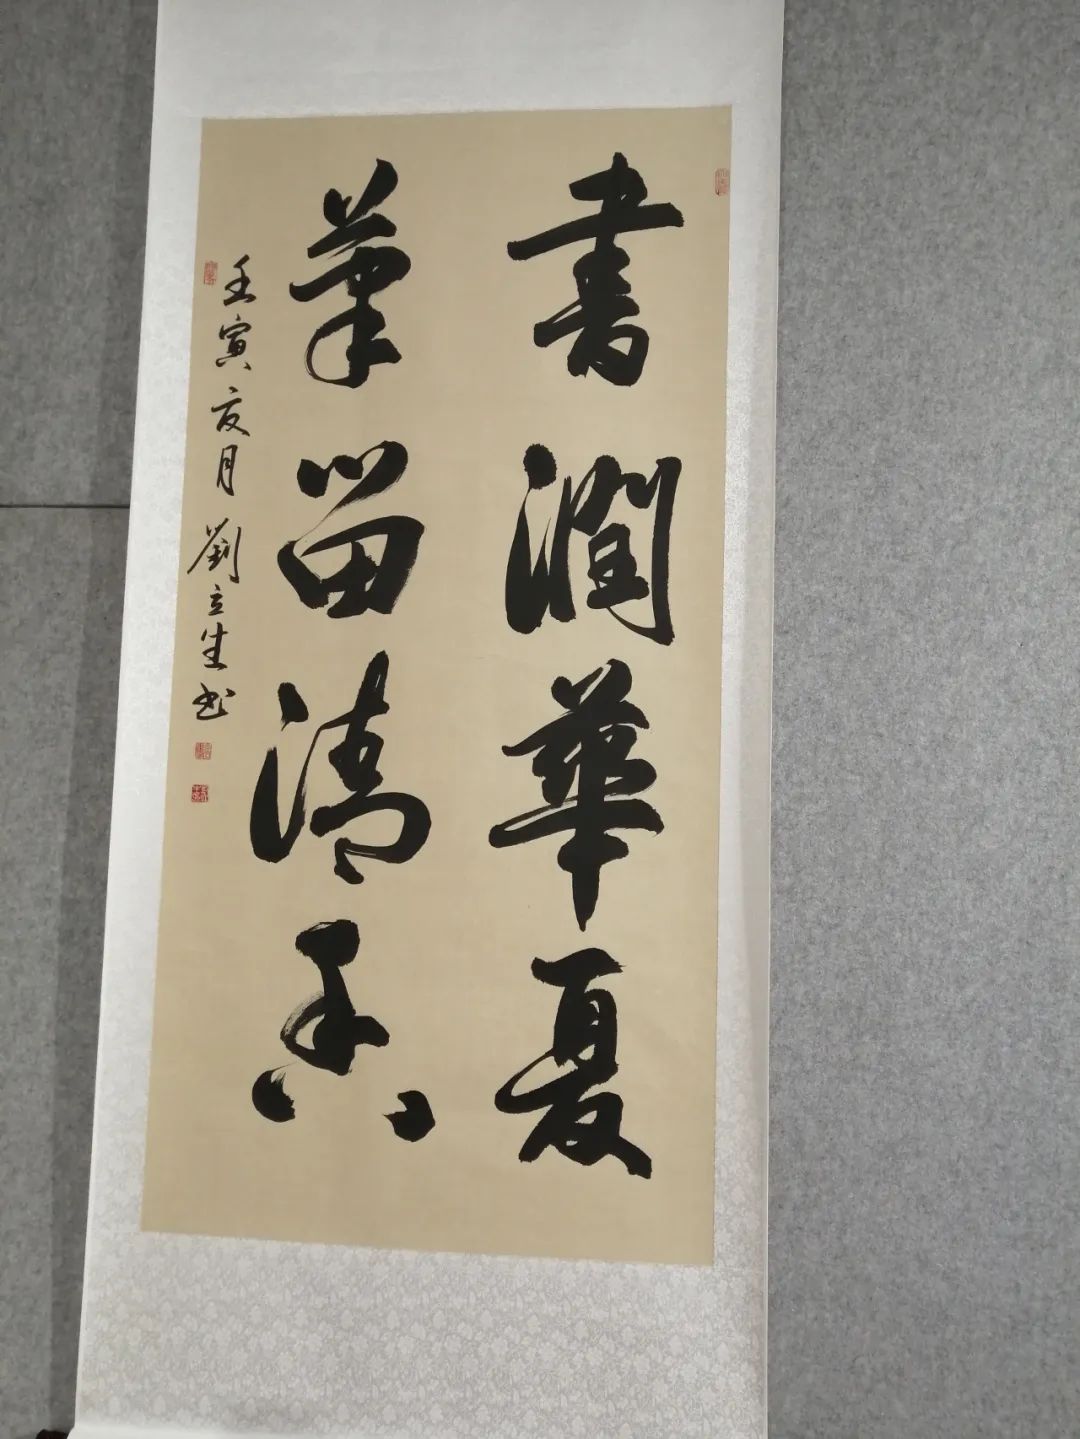 書潤華夏
筆留清香
壬寅夏月 劉立生书